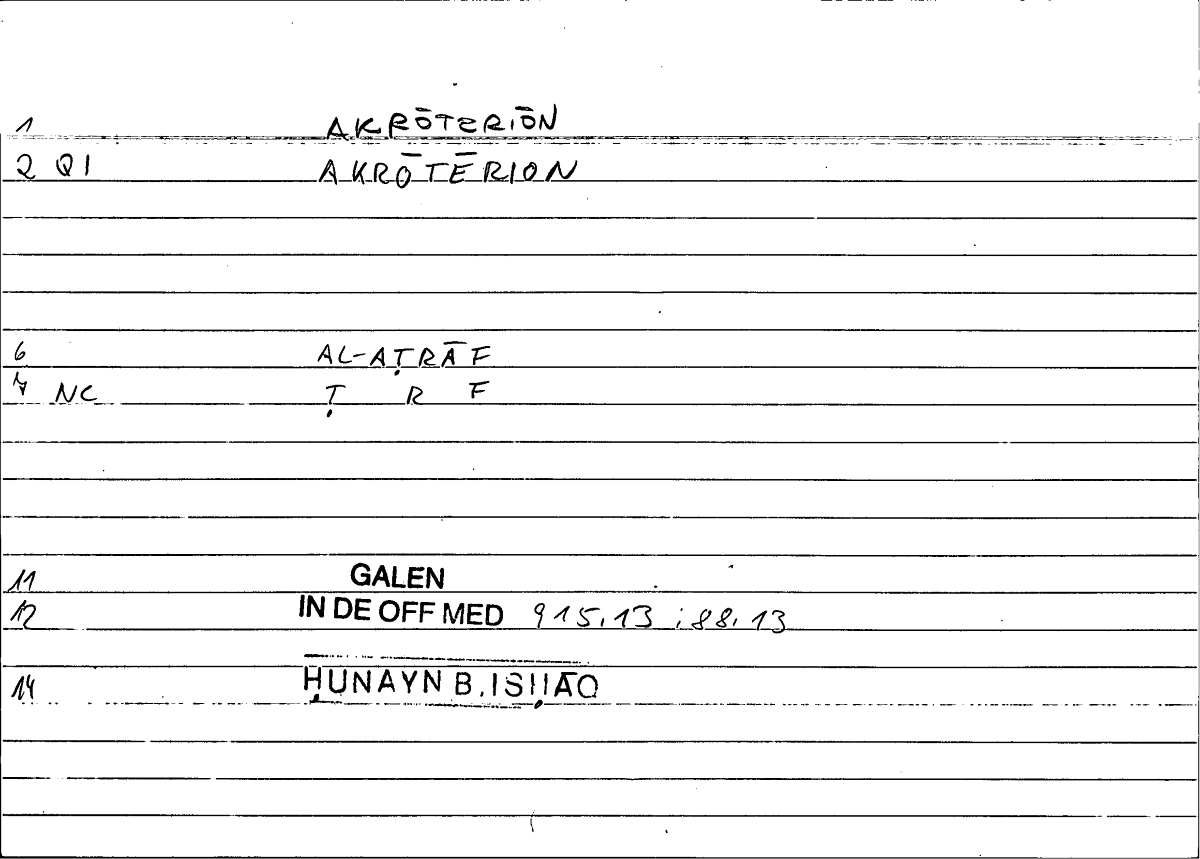 1 AKRŌTERIŌN
2 QI AKRŌTĒRION
6 AL-AṬRĀF
7 NC Ṭ R F
11 GALEN
12 IN DE OFF MED 915,13 ; 88,13
14 ḤUNAYN B. ISḤĀQ